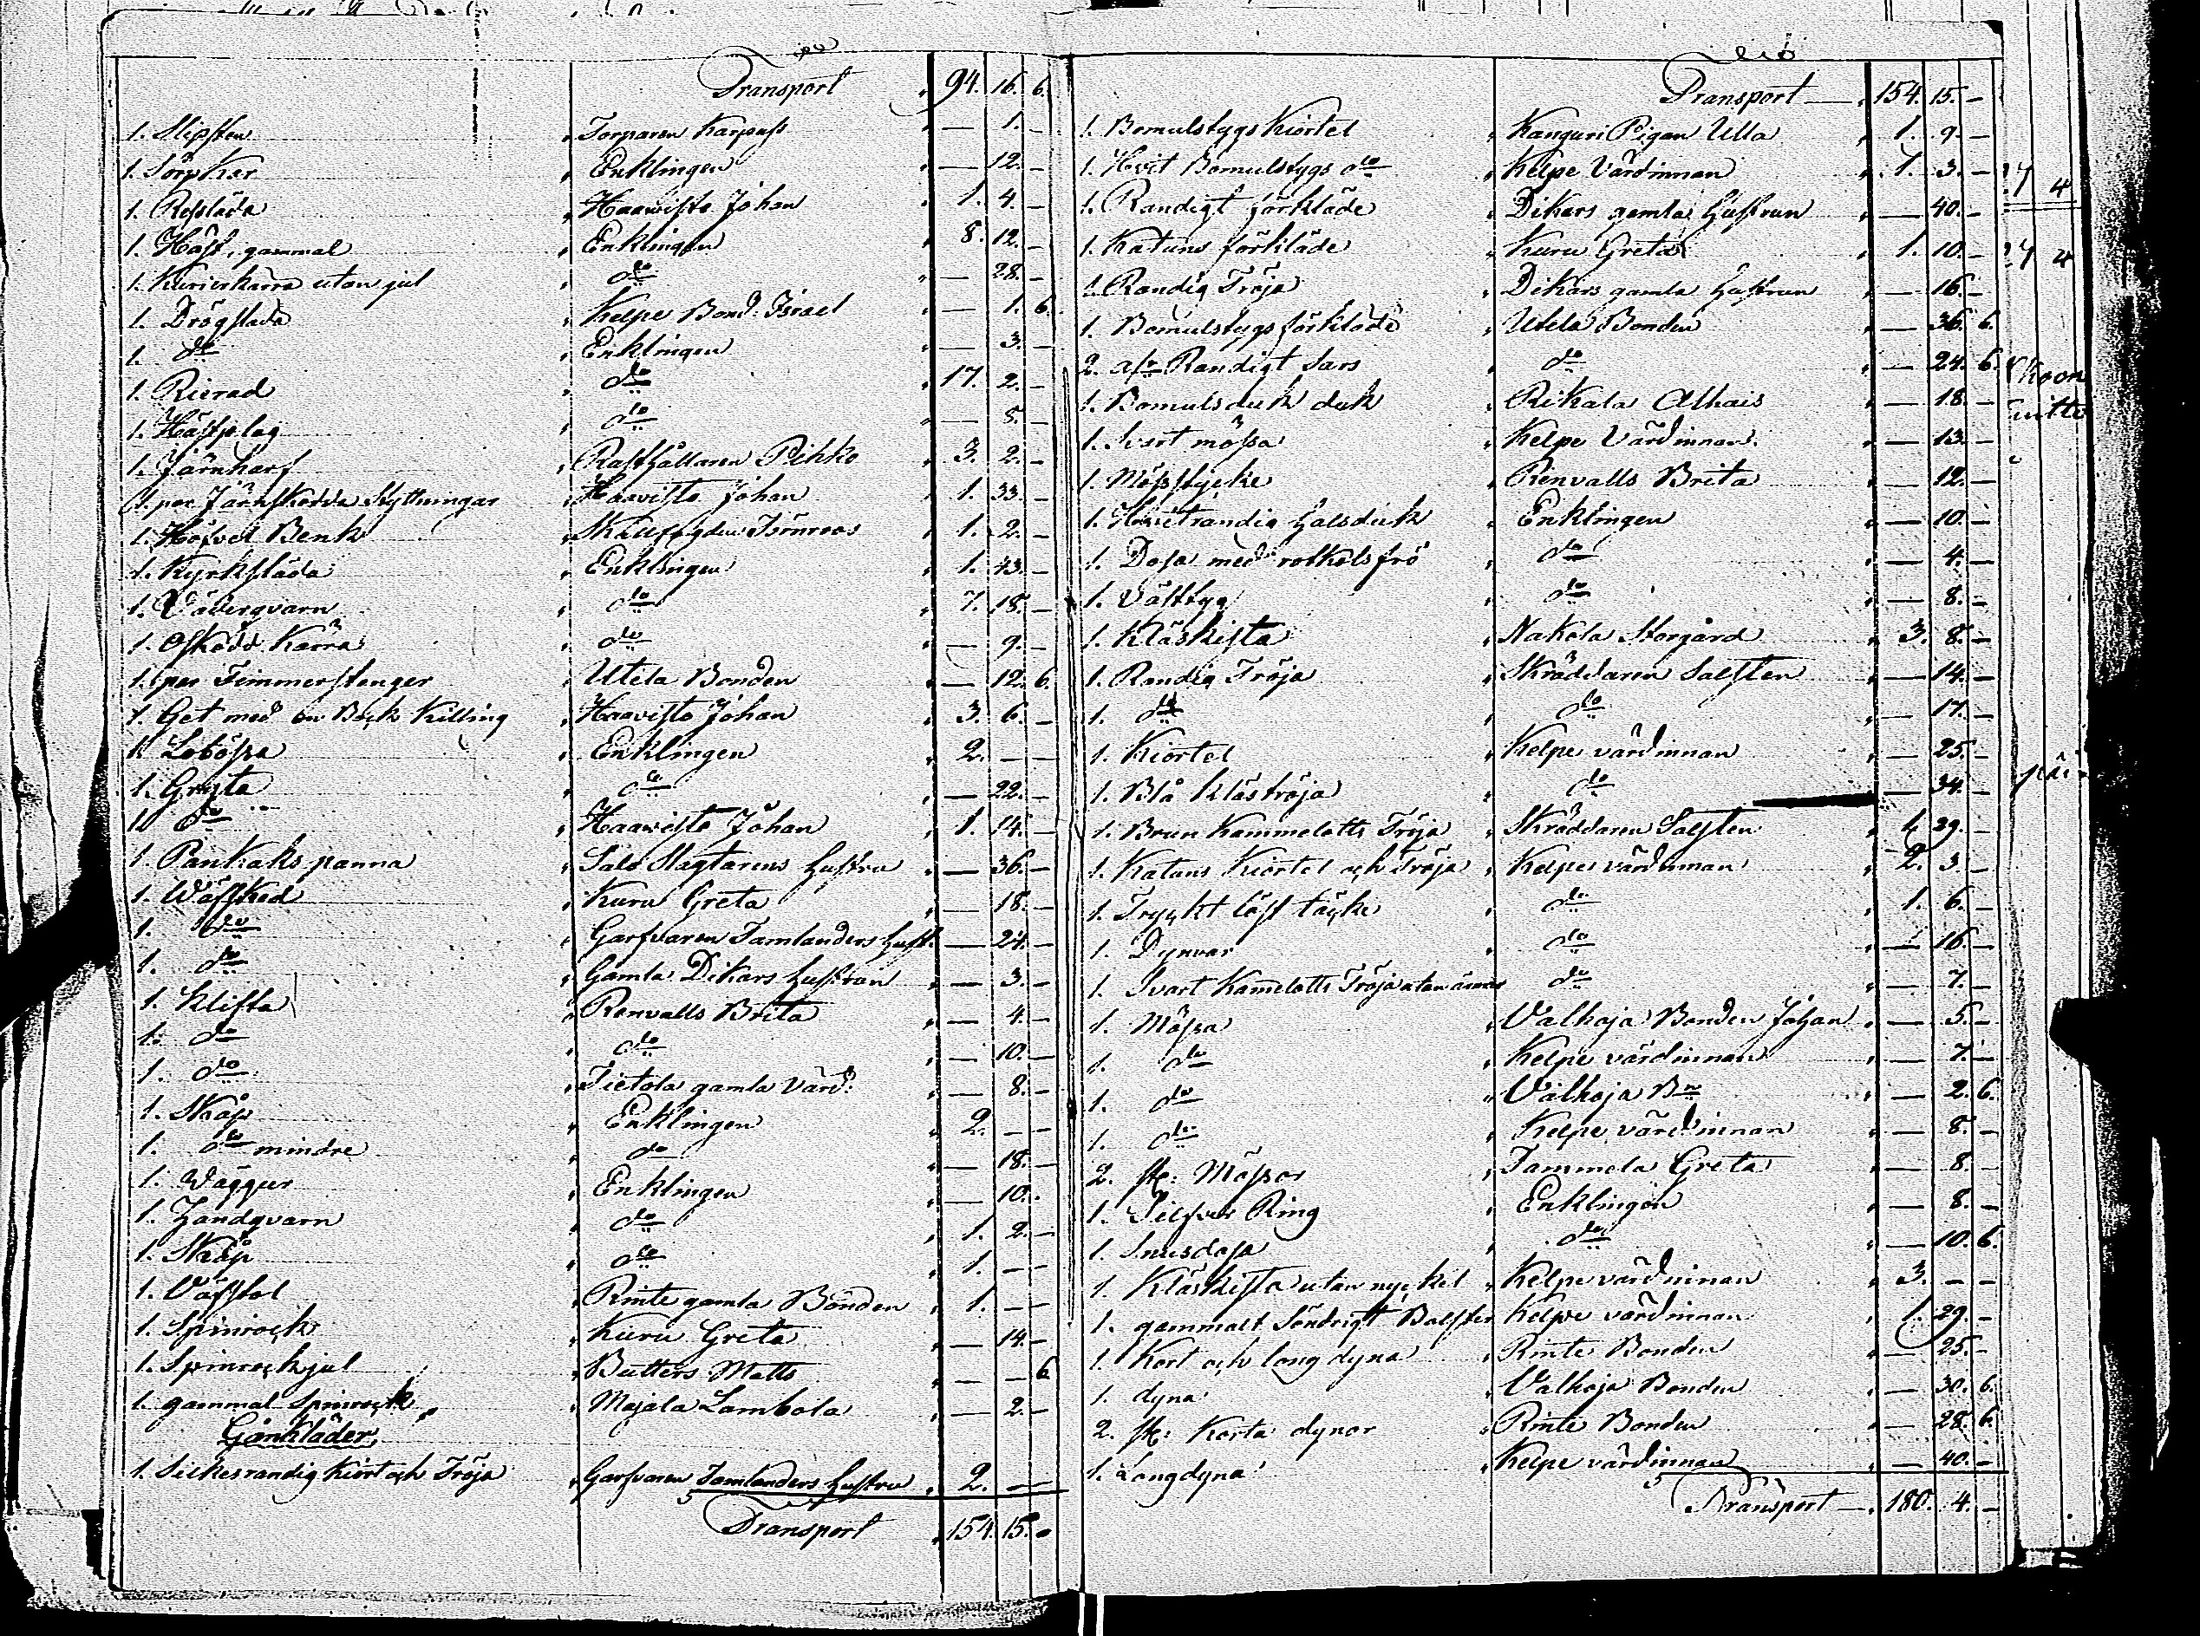 Transport 94. 16. 6.
1. Slipsten Torparen Karpass — 1. —
1. Sörpkar Enklingen — 12. —
1. Resläda Haavisto Johan 1. 4. —
1. Häst, gammal Enklingen 8. 12. —
1. Kurirkärra utan jul do — 28. —
1. Drögslada Kelpe Bond. Israel — 1. 6.
1. do Enklingen — 3. —
1. Rierad do 17. 2. —
1. Hästplog do — 8. —
1. Järnharf Rusthållaren Pihko 3. 2. —
1. par Järnskodda Skyttningar Haavisto Johan 1. 33. —
1. Höfvel Benk Törnroos 1. 2. —
1. Kyrksläda Enklingen 1. 43. —
1. Väderqvarn do 7. 18. —
1. Oskodd Kärra do — 9. —
1. par Timmerstenger Utela Bonden — 12. 6.
1. Get med en Bock Killing Haavisto Johan 3. 6. —
1. Lobössa Enklingen 2. — —
1. Gryta do — 22. —
1. do Haavisto Johan 1. 14. —
1. Pankaks panna Salo Slagtarens hustru — 36. —
1. Wäfsked Kuru Greta — 18. —
1. do Garfvaren Tamlanders hust. — 24. —
1. do Gamla Dikars hustrun — 3. —
1. Klifta Renvalls Brita — 4. —
1. do do — 10. —
1. do Tietola gamla värd. — 8. —
1. Skåp Enklingen 2. — —
1. do mindre do — 18. —
1. Waggur Enklingen — 10. —
1. Handqvarn do 1. 2. —
1. Skåp do 1. — —
1. Väfstol Rinte gamla Bonden 1. — —
1. Spinrock Kuru Greta — 14. —
1. Spinrockjul Butters Matts — — 6
1. gammal Spinrock Majala Lambola — 2. —
Gånkläder
1. Silkesrandig Kiort och Tröja Garfvaren Tamlanders hustru 2. — —
Transport 154. 15. —
Transport — 154. 15. —
1. Bomulstygs Kiortel Kanguri Pigan Ulla 1. 9. —
1. Hvit Bomulstygs do Kelpe Värdinnan 1. 3. —
1. Randigt förkläde Dikars gamla hustrun — 40. —
1. Katuns förkläde Kuru Greta 1. 10. —
1. Randig Tröja Dikars gamla hustrun — 16. —
1. Bomulstygs förkläde Utela Bonden — 36. 6.
2. Randigt Sars do — 24. 6.
1. Bomulsduk duk Rikala Alhais — 18. —
1. Svart mössa Kelpe Värdinnan — 13. —
1. Mösstycke Renvalls Brita — 12. —
1. Hvitrandig halsduk Enklingen — 10. —
1. Dosa med rotkålsfrö do — 4. —
1. Vålttyg do — 8. —
1. Kläskista Nakola Storgård 3. 8. —
1. Randig Tröja Skräddaren Salsten — 14. —
1. do do — 17. —
1. Kiortel Kelpe värdinnan — 25. —
1. Blå klästroja do — 34. —
1. Brun Kammelotts Tröja Skräddaren Salsten 1. 29. —
1. Katuns Kiortel och Tröja Kelpe värdinnan 2. 3. —
1. Tryckt löst täcke do 1. 6. —
1. Dynvar do — 16. —
1. Svart Kamelotts Tröja utan ärmar do — 7. —
1. Mössa Valhoja Bonden Johan — 5. —
1. do Kelpe värdinnan — 7. —
1. do Valhoja Bn — 2. 6.
1. do Kelpe värdinnan — 8. —
2. st: Mössor Tammela Greta — 8. —
1. Silfver Ring Enklingen — 8. —
1. Snusdosa do — 10. 6.
1. Kläskista utan nyckel Kelpe värdinnan 3. — —
1. gammalt Söndrigt Bolster Kelpe värdinnan 1. 29. —
1. Kort och lång dyna Rinte Bonden — 25. —
1. dyna Valhoja Bonden — 30. 6.
2. st: Korta dynor Rinte Bonden — 28. 6.
1. Långdyna Kelpe värdinnan — 40. —
Transport — 180. 4. —